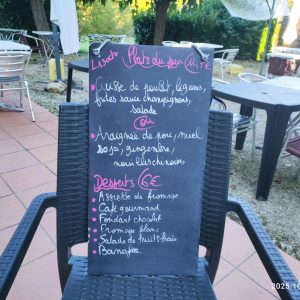 Plats du jour
Cuisse de poulet, légumes,
frites sauce champignons,
salade
ou
Araignée de porc, miel
soja, gingembre,
nouilles chinoises
Desserts 6€
Assiette de fromage
Café gourmand
Fondant chocolat
Fromage blanc
Salade de fruits frais
Banofee
2025.10